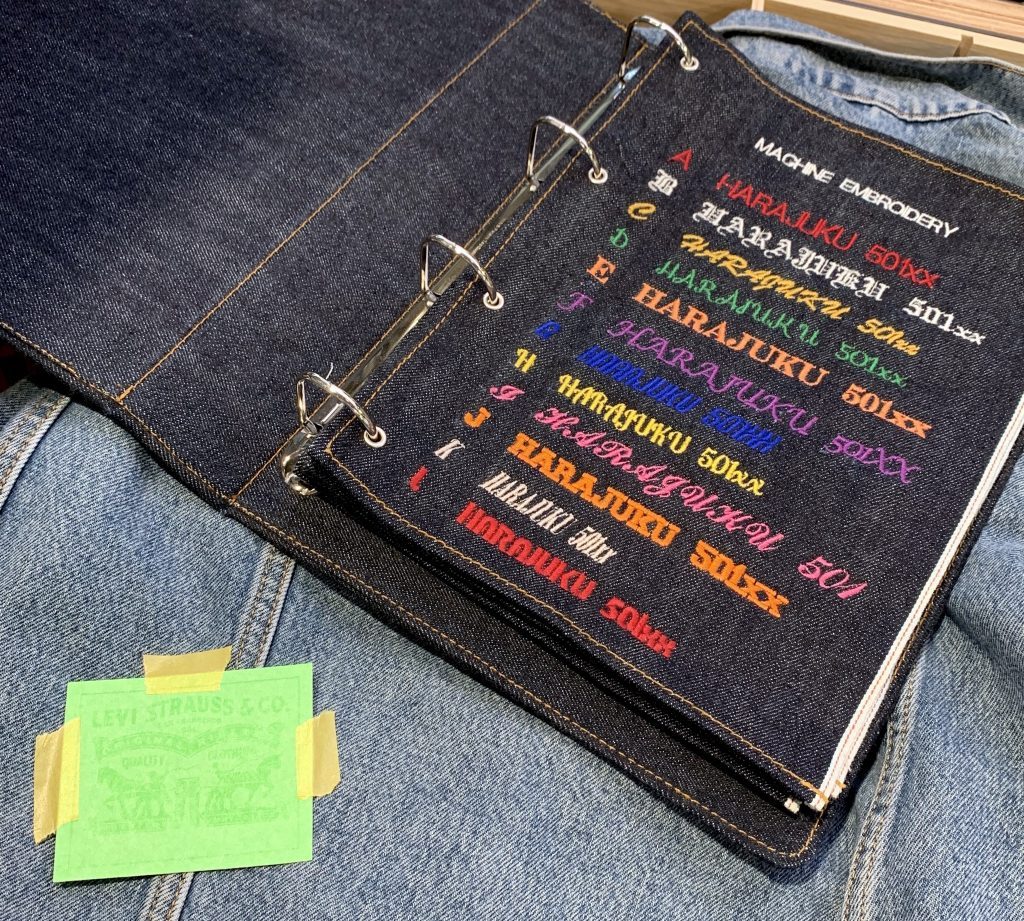 MACHINE EMBROIDERY
A HARAJUKU 501xx
B HARAJUKU 501xx
C HARAJUKU 501xx
D HARAJUKU 501xx
E HARAJUKU 501xx
F HARAJUKU 501XX
G HARAJUKU 501xx
H HARAJUKU 501xx
I HARAJUKU 501
J HARAJUKU 501xx
K HARAJUKU 501xx
L HARAJUKU 501xx
LEVI STRAUSS & CO.
QUALITY CLOTHING